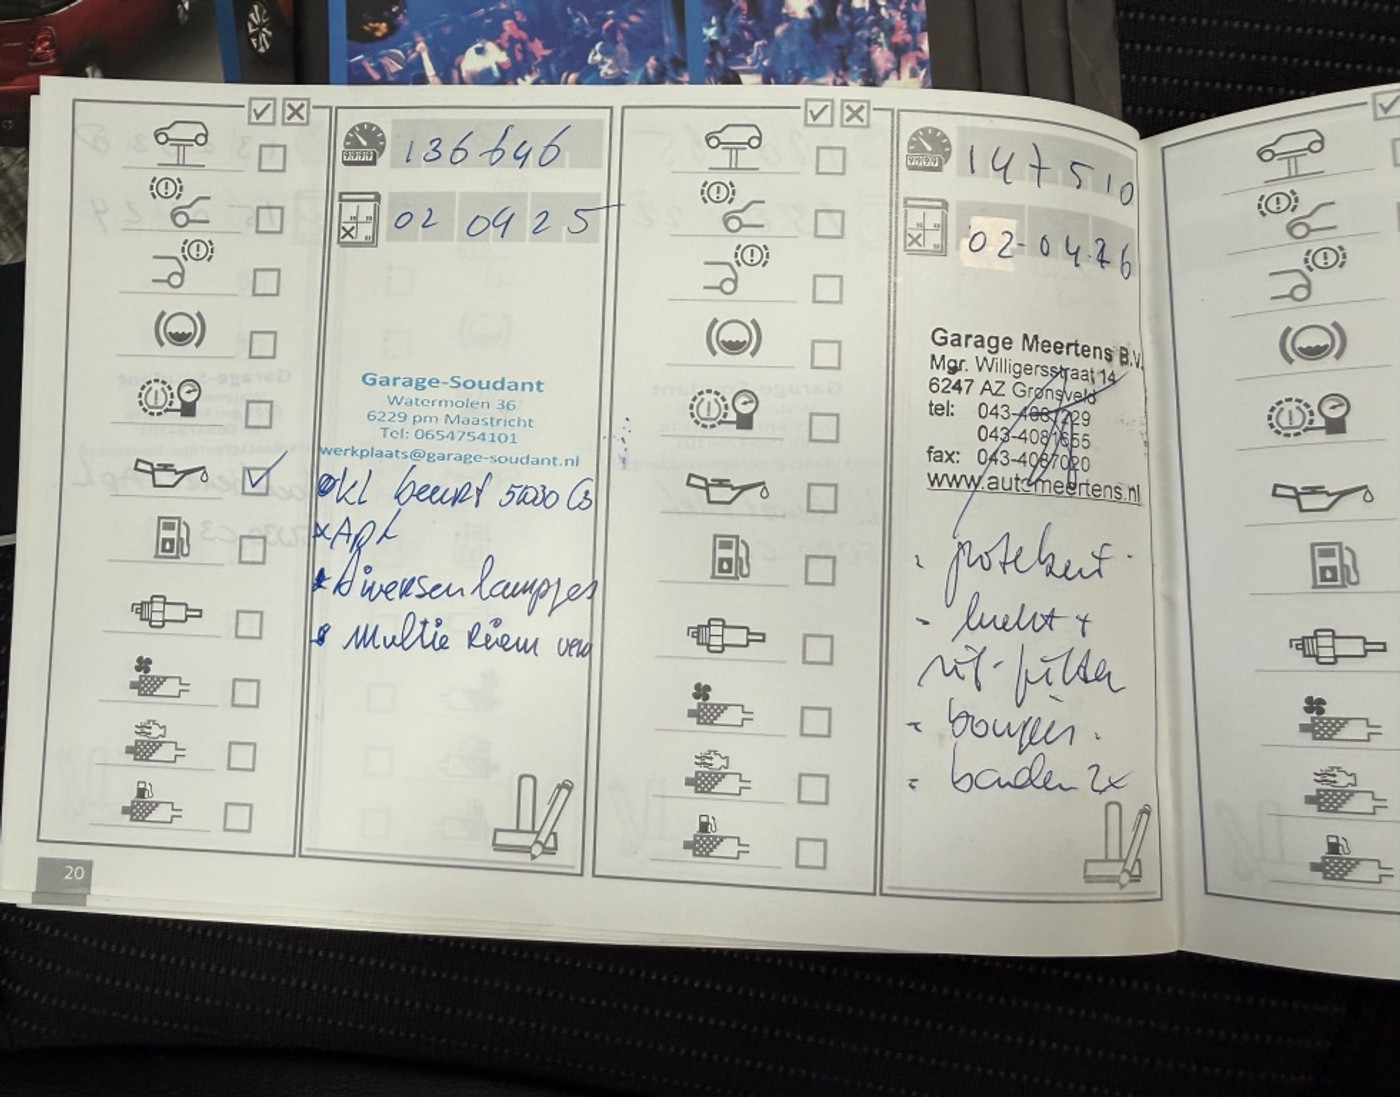 136646
02 04 25
Garage-Soudant
Watermolen 36
6229 pm Maastricht
Tel: 0654754101
werkplaats@garage-soudant.nl
kl beurt 5W30 C3
x Apk
x Diversen lampjes
x Multie Riem verv
20
147510
02-04-26
Garage Meertens B.V.
Mgr. Willigersstraat 14
6247 AZ Gronsveld
tel: 043-4081229
043-4081655
fax: 043-4087020
www.automeertens.nl
- grote beurt
- lucht +
int-filter
- bougies.
- banden 2x